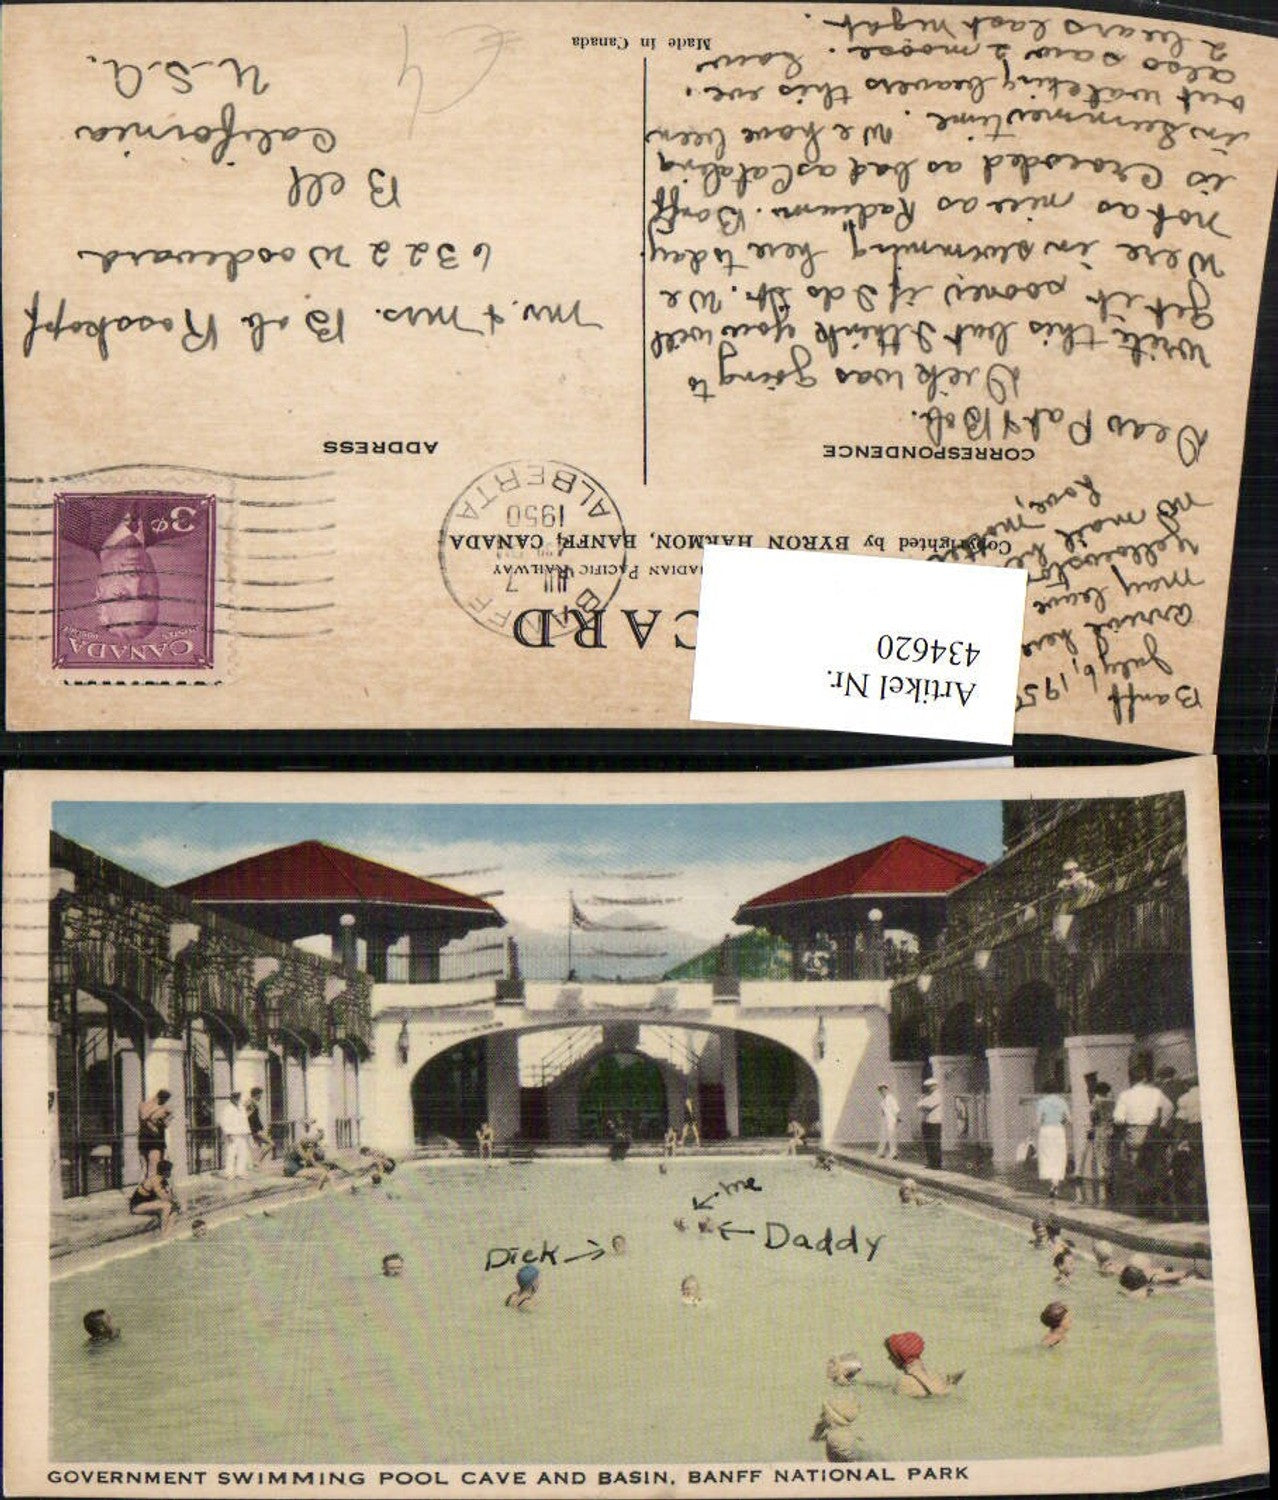 CARD
CANADIAN PACIFIC RAILWAY
Copyrighted by BYRON HARMON, BANFF, CANADA
CORRESPONDENCE
ADDRESS
Made in Canada
Artikel Nr.
434620
BANFF
JUL 7
1950
ALBERTA
CANADA
POSTES POSTAGE
3¢
Banff
July 6, 1950
arrived here
may leave
Yellowstone
no mail
Love, Mother
Dear Pat & Bob.
Dick was going to
write this but I think you will
get it sooner if I do it. We
were in swimming here today.
not as nice as Radium. Banff
is crowded as bad as Catalina
in summer time. We have been
out watching beavers this eve.
also saw 2 moose. Saw
2 bears last night.
Mr. & Mrs. Bob Rosskopf
6322 Woodward
Bell
California
U.S.A.
€4
me
Daddy
Dick
GOVERNMENT SWIMMING POOL CAVE AND BASIN, BANFF NATIONAL PARK